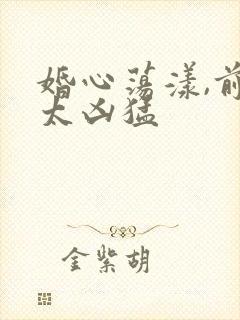 婚心荡漾,前
太凶猛
金紫胡